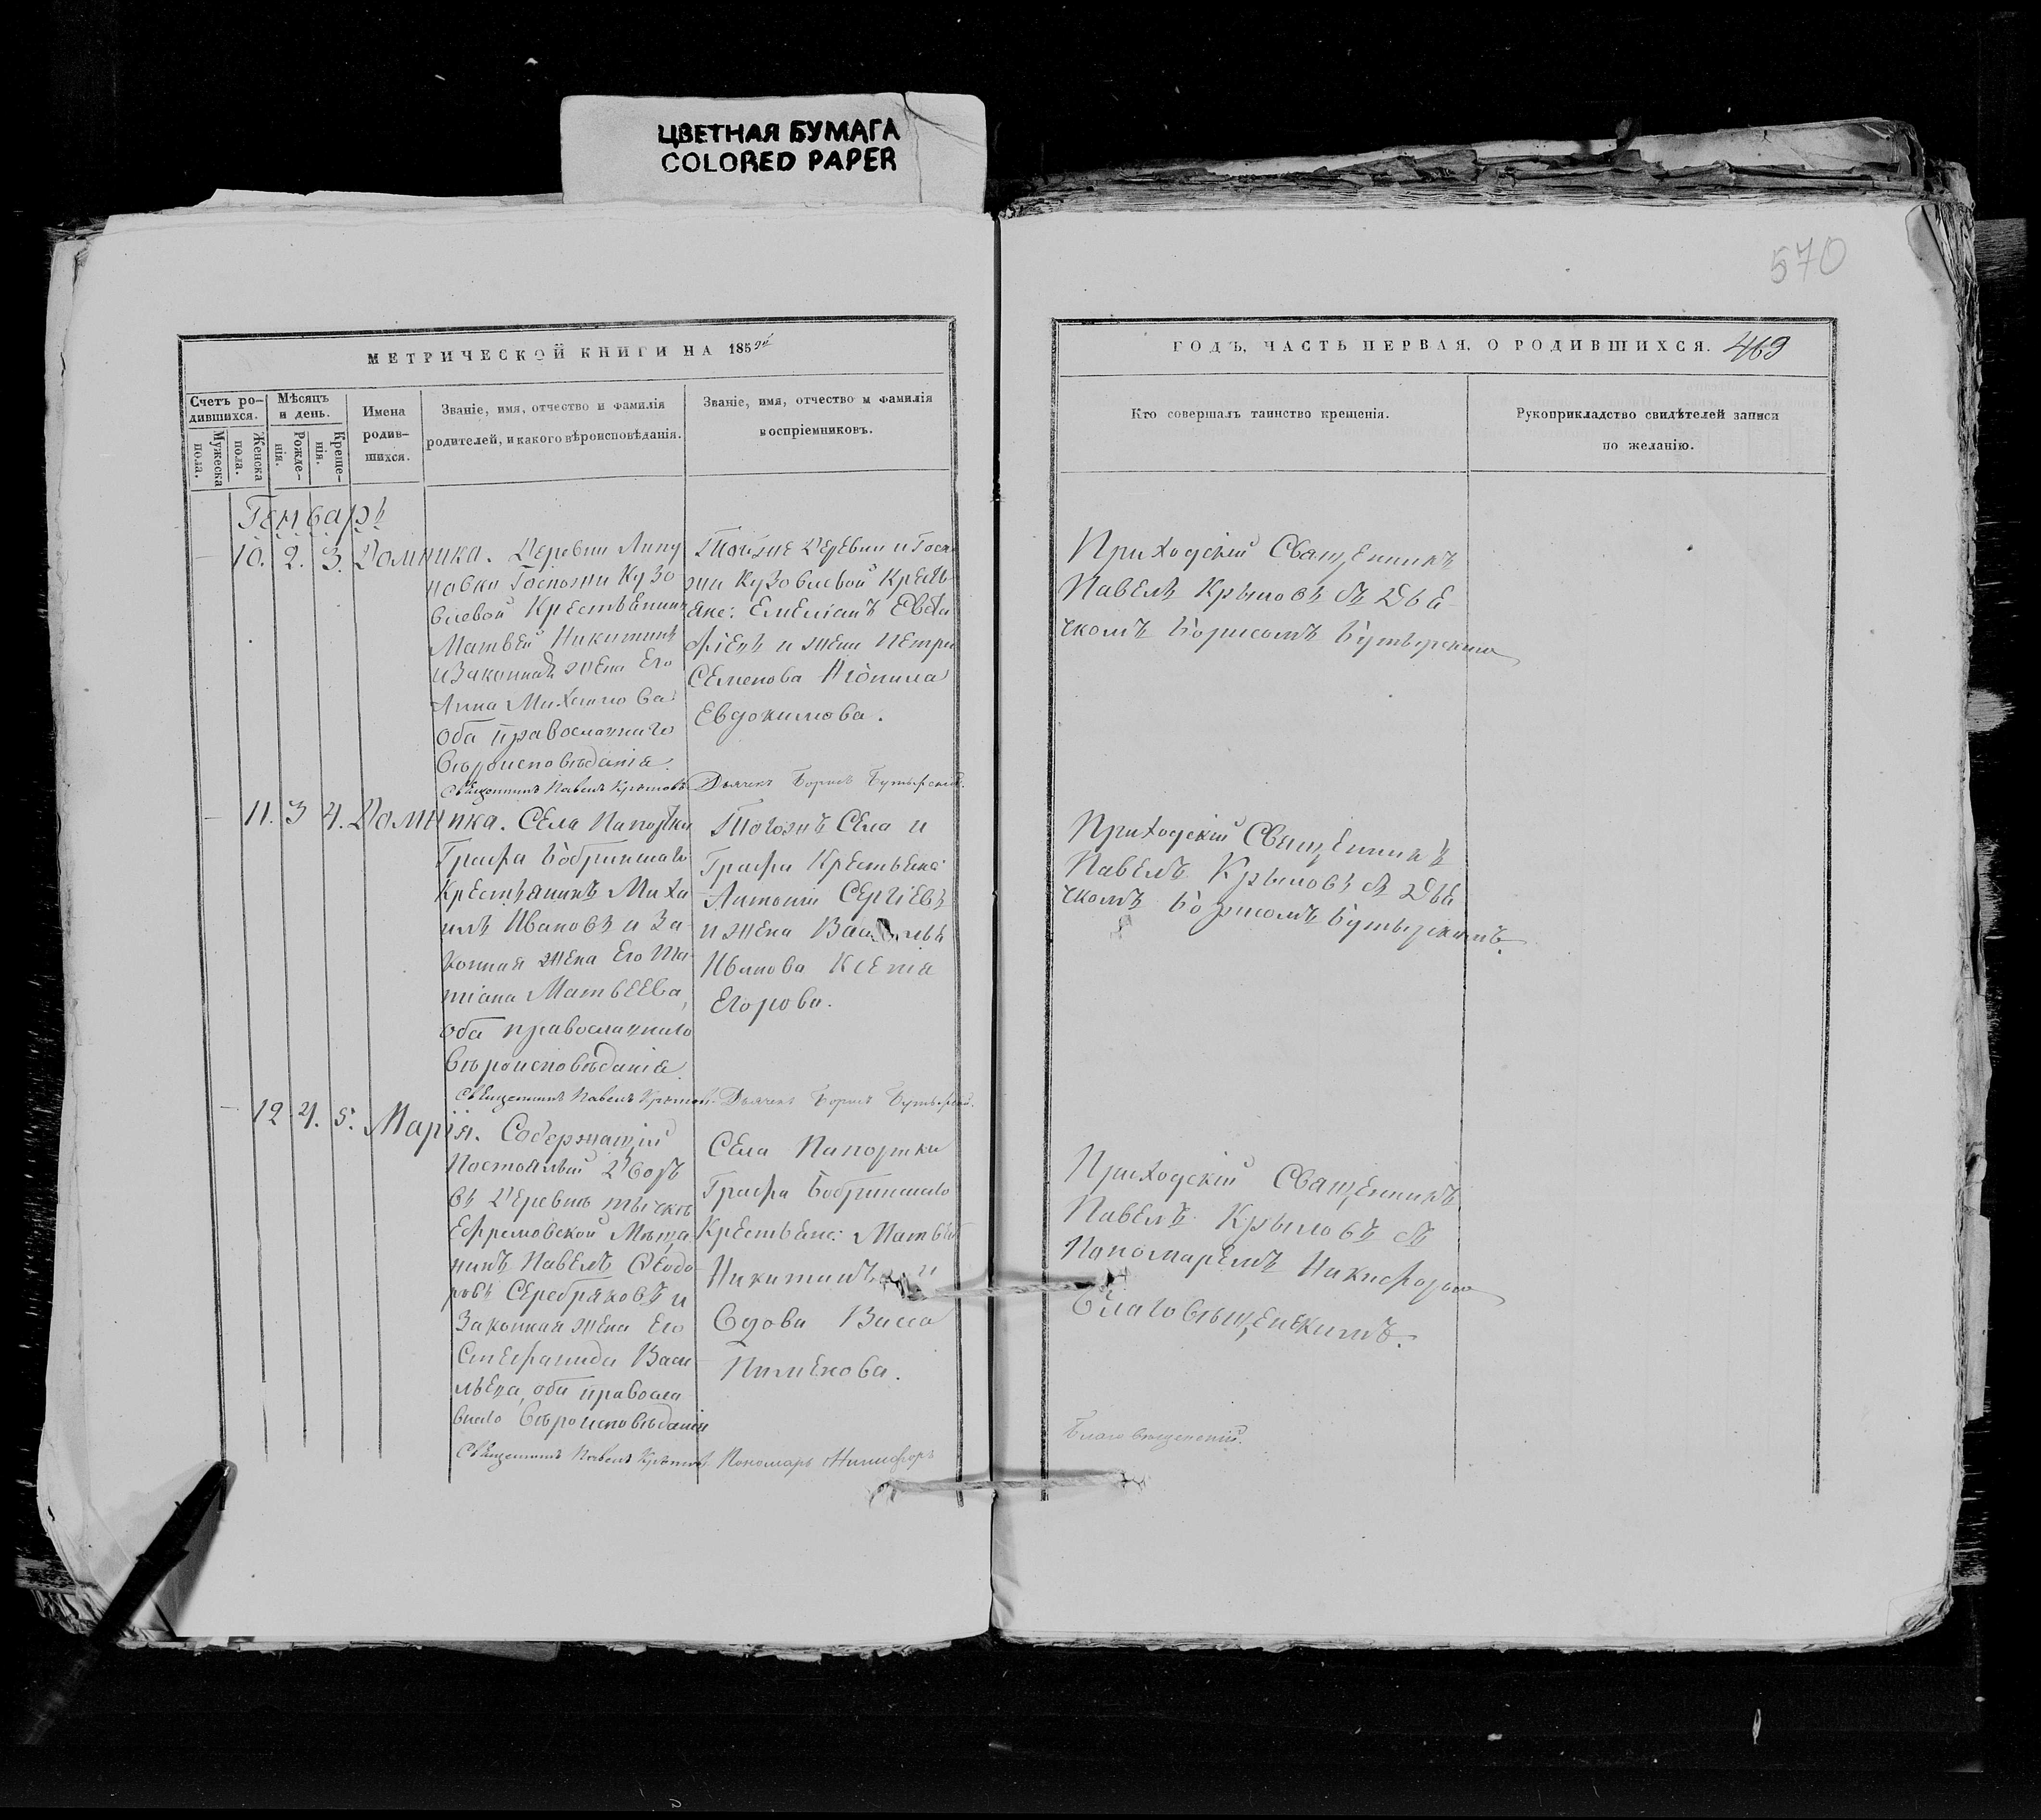 ЦВЕТНАЯ БУМАГА
COLORED PAPER
570
МЕТРИЧЕСКОЙ КНИГИ НА 1859й
Счетъ ро-
дившихся.
Мужеска
пола.
Женска
пола.
Мѣсяцъ
и день.
Рожде-
нія.
Креще-
нія.
Имена
родив-
шихся.
Званіе, имя, отчество и фамилія
родителей, и какого вѣроисповѣданія.
Званіе, имя, отчество и фамилія
воспріемниковъ.
Генварь
10. 2. 3. Домника.
Деревни Липу
повки Госпожи Кузо
влевой Крестьянинъ
Матвей Никитинъ
и Законная жена Его
Анна Михаилова
оба православнаго
вѣроисповѣданія.
Священникъ Павелъ Крыловъ
Тойже Деревни и Госпо
жи Кузовлевой Кресть
яне: Емеліанъ
и жена Петра
Семенова
Евдокимова.
Дьячекъ Борисъ Бутырскій.
11. 3 4. Домника.
Села Папортки
Графа Бобринскаго
Крестьянинъ Миха
илъ Ивановъ и За
конная жена Его Та
тіана Матвеева,
оба православнаго
вѣроисповѣданія
Священникъ Павелъ Крыловъ.
Тогожъ Села и
Графа Крестьяне:
Антоній Сергіевъ
и жена
Иванова Ксенія
Егорова.
Дьячекъ Борисъ Бутырскій.
12 4. 5. Марія.
Содержащій
Постоялый Дворъ
въ Деревнѣ
Ефремовской Мѣща
нинъ Павелъ Ѳеодо
ровъ Серебряковъ и
Законная жена Его
Стефанида Васи
льева, оба правосла
внаго вѣроисповѣданія
Священникъ Павелъ Крыловъ.
Села Папортки
Графа Бобринскаго
Крестьяне: Матвей
Никитинъ и
Вдова Васса
Пименова.
Пономарь Никифоръ
ГОДЪ, ЧАСТЬ ПЕРВАЯ, О РОДИВШИХСЯ. 469
Кто совершалъ таинство крещенія.
Рукоприкладство свидѣтелей записи
по желанію.
Приходскій Священникъ
Павелъ Крыловъ съ Дья
чкомъ Борисомъ Бутырскимъ
Приходскій Священникъ
Павелъ Крыловъ съ Дья
чкомъ Борисомъ Бутырскимъ.
Приходскій Священникъ
Павелъ Крыловъ съ
Пономаремъ Никифоромъ
Благовѣщенскимъ.
Благовѣщенскій.